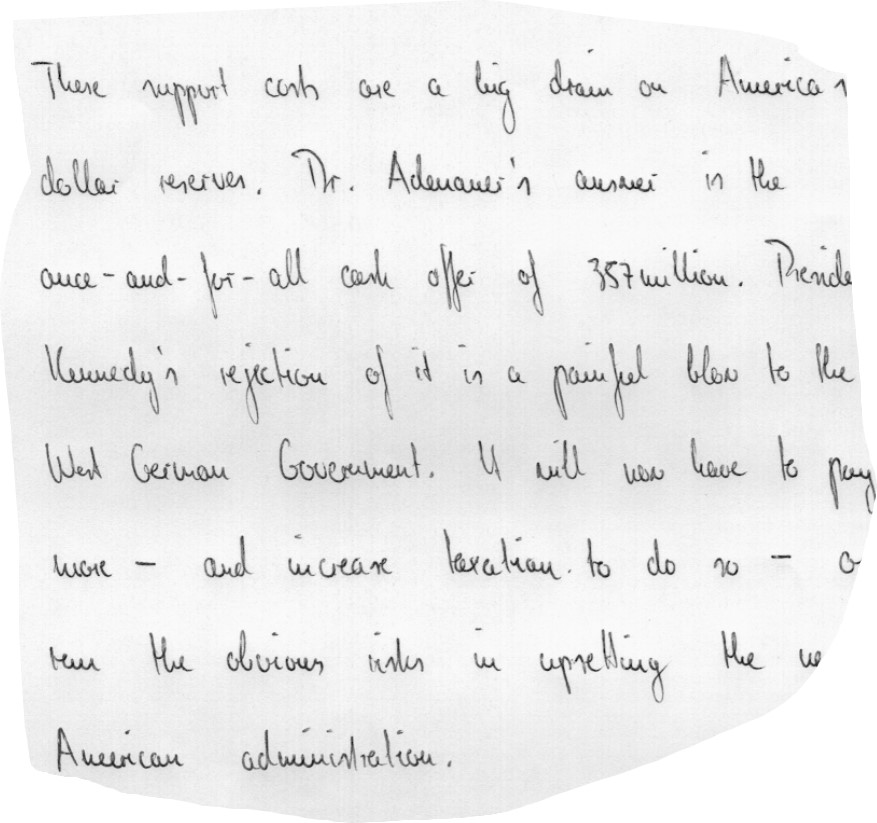 These support costs are a big drain on America's
dollar reserves. Dr. Adenauer's answer is the
once-and-for-all cash offer of 357million.
Kennedy's rejection of it is a painful blow to the
West German Government. It will now have to pay
more - and increase taxation to do so -
run the obvious risks in upsetting the
American administration.